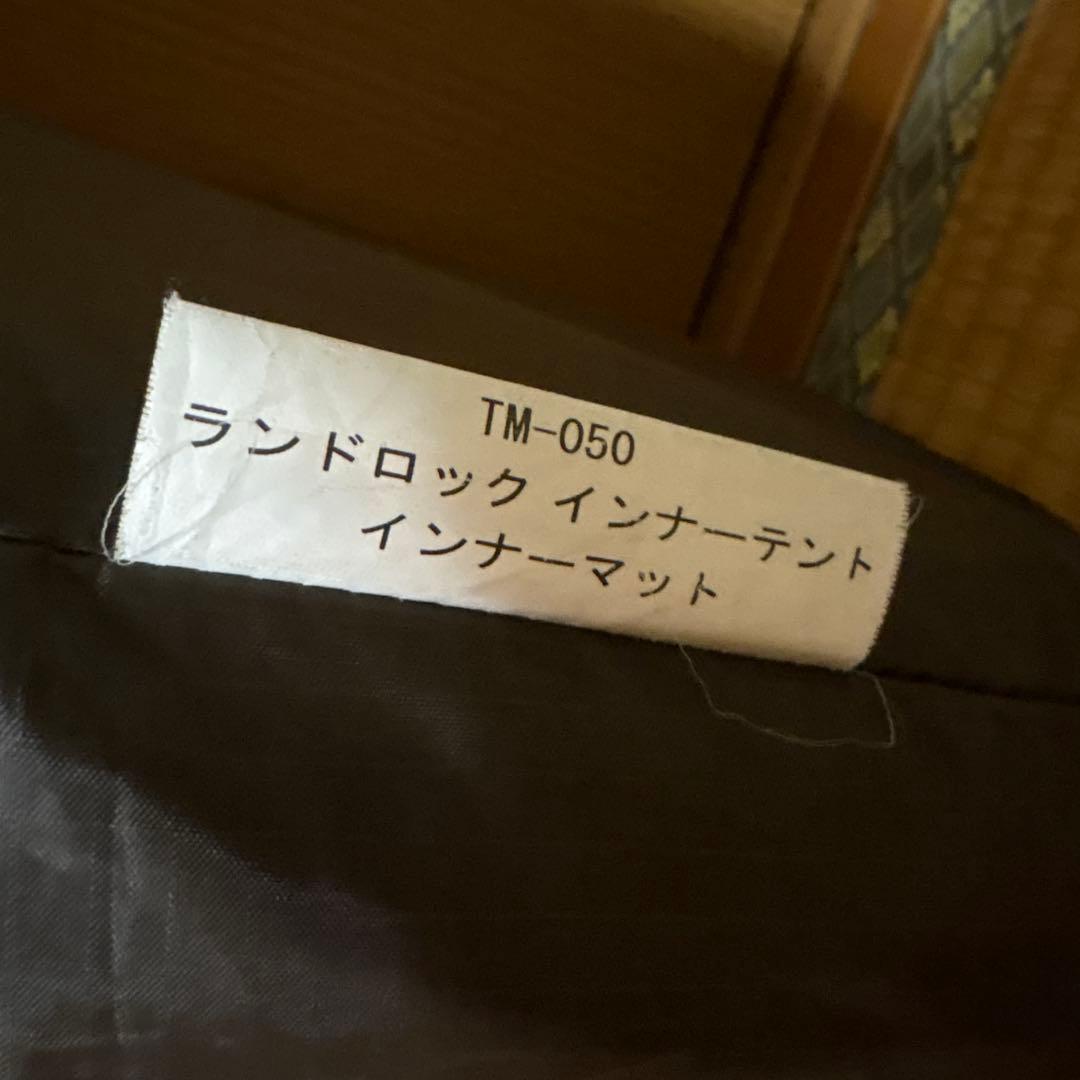 TM-050
ランドロック インナーテント
インナーマット